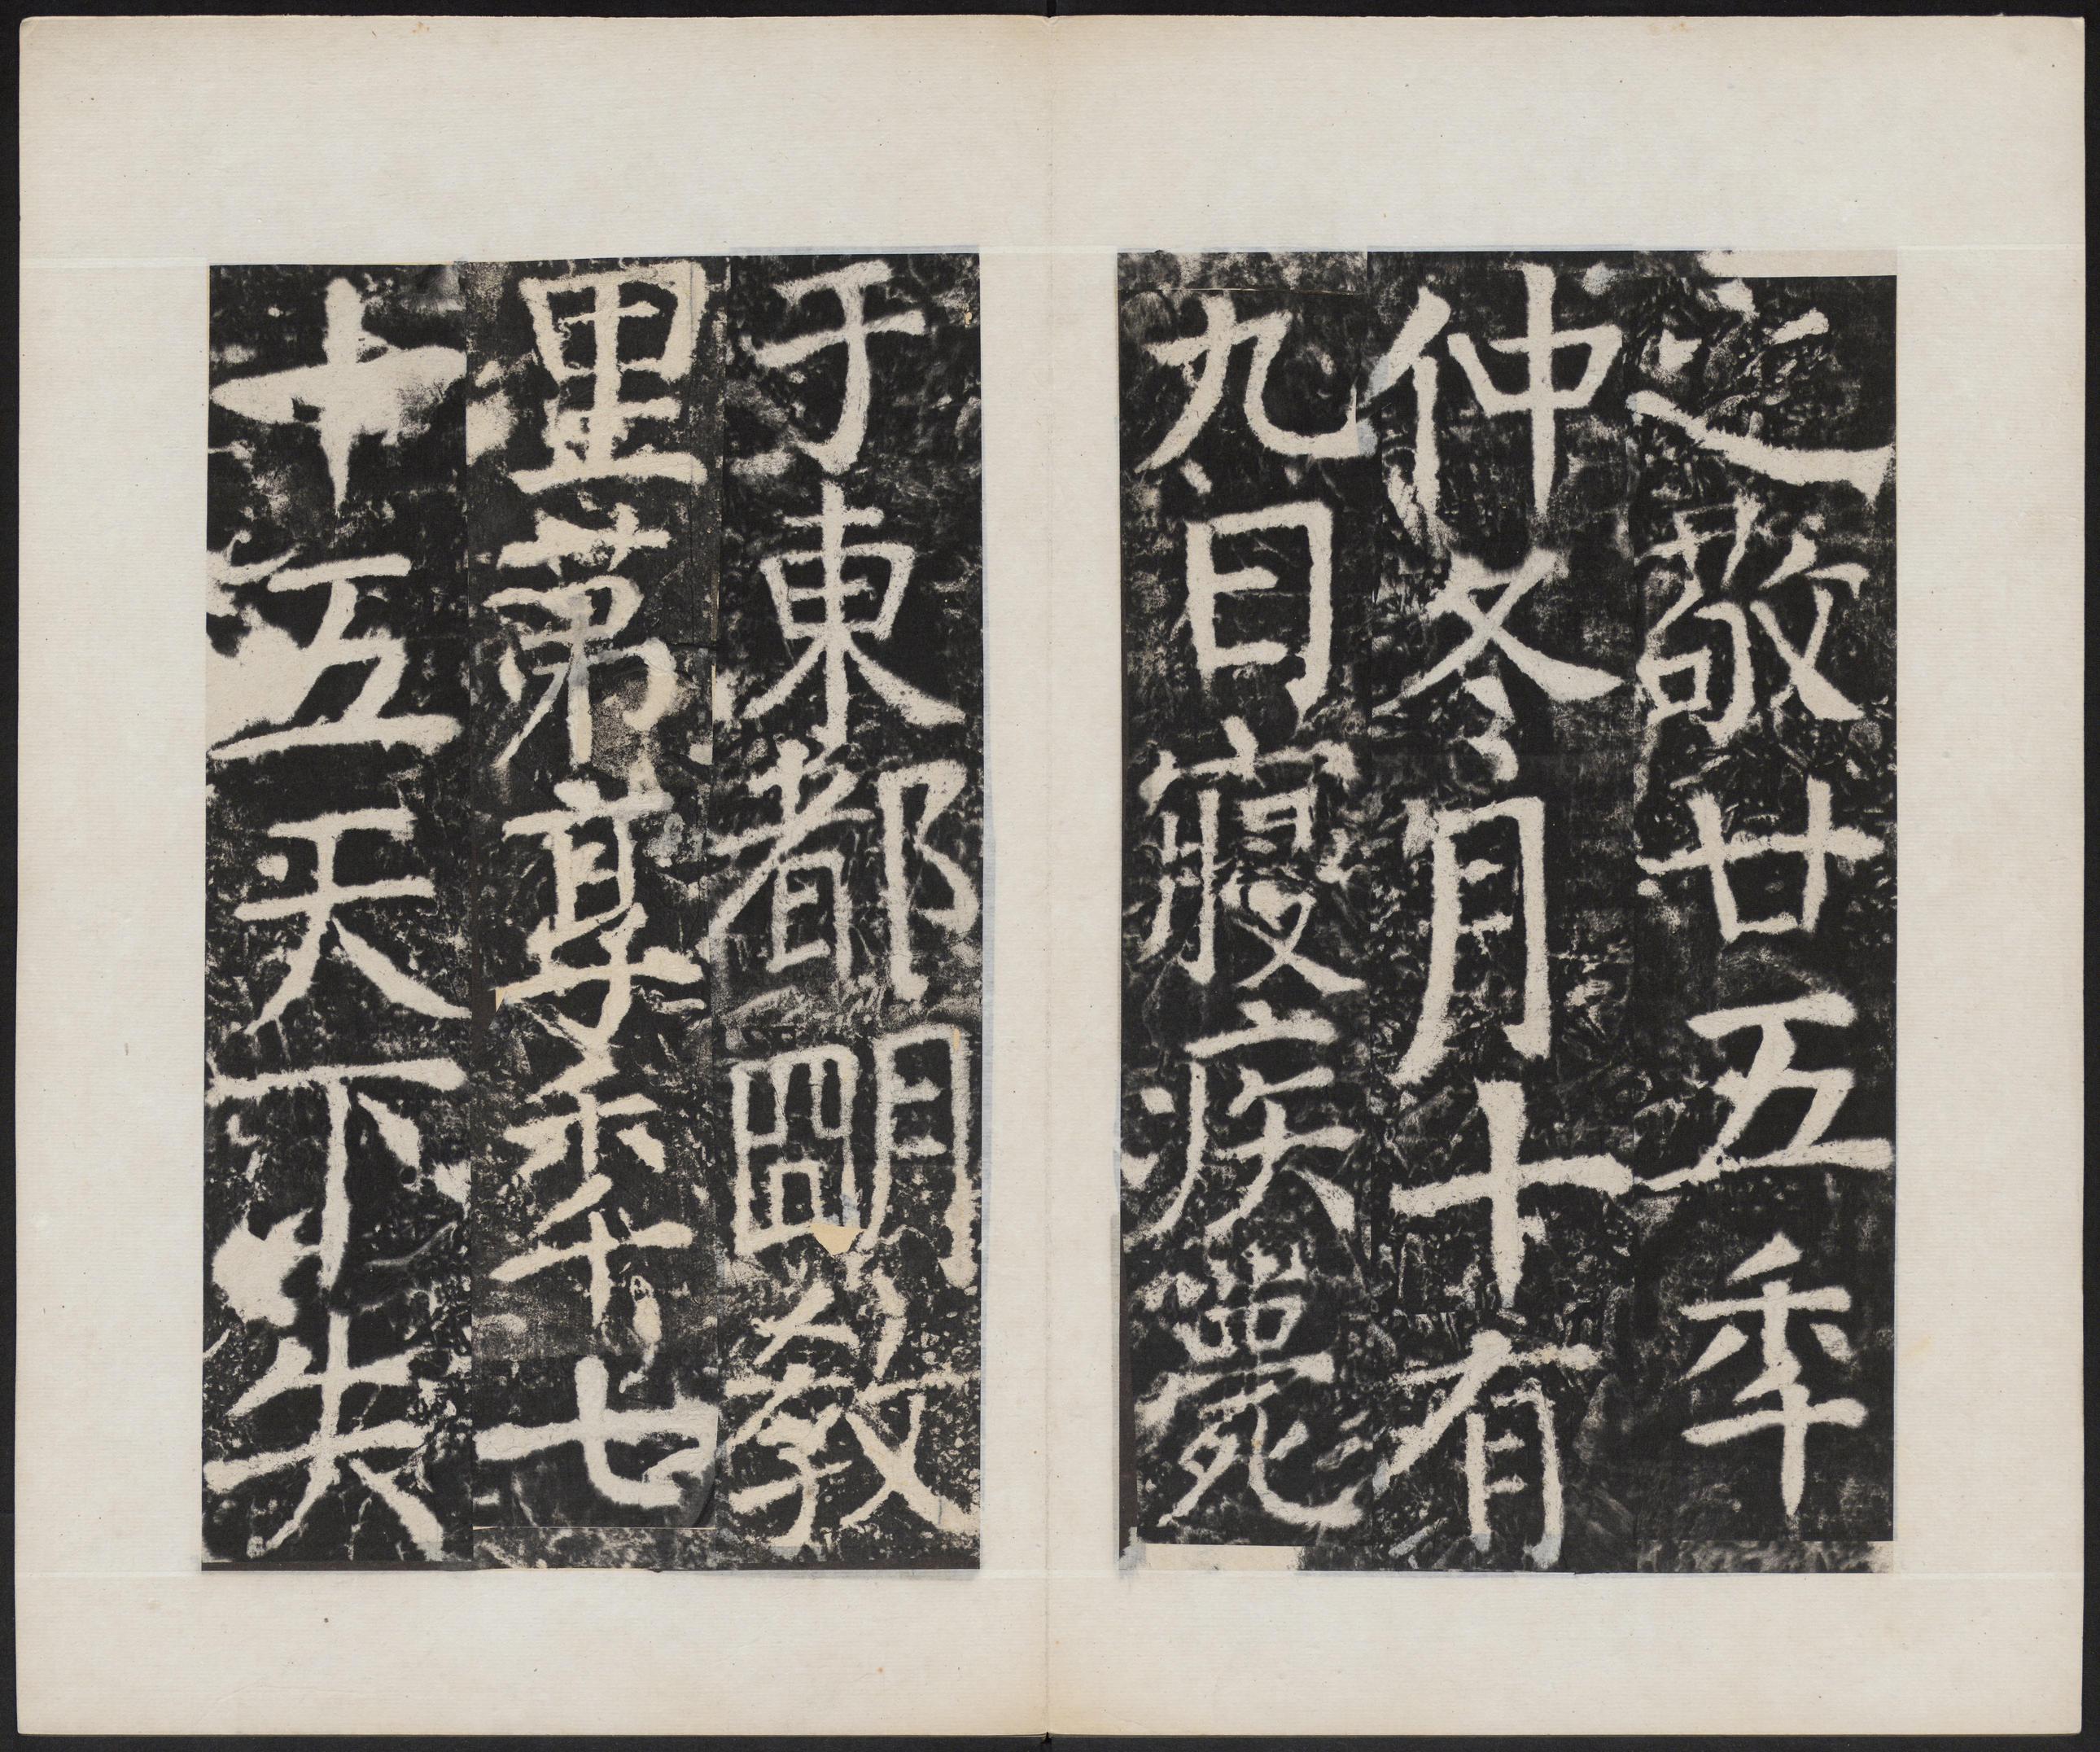 之敬廿五年
仲冬月十有
九日寢疾薨
于東都明教
里第享年七
十五天下失